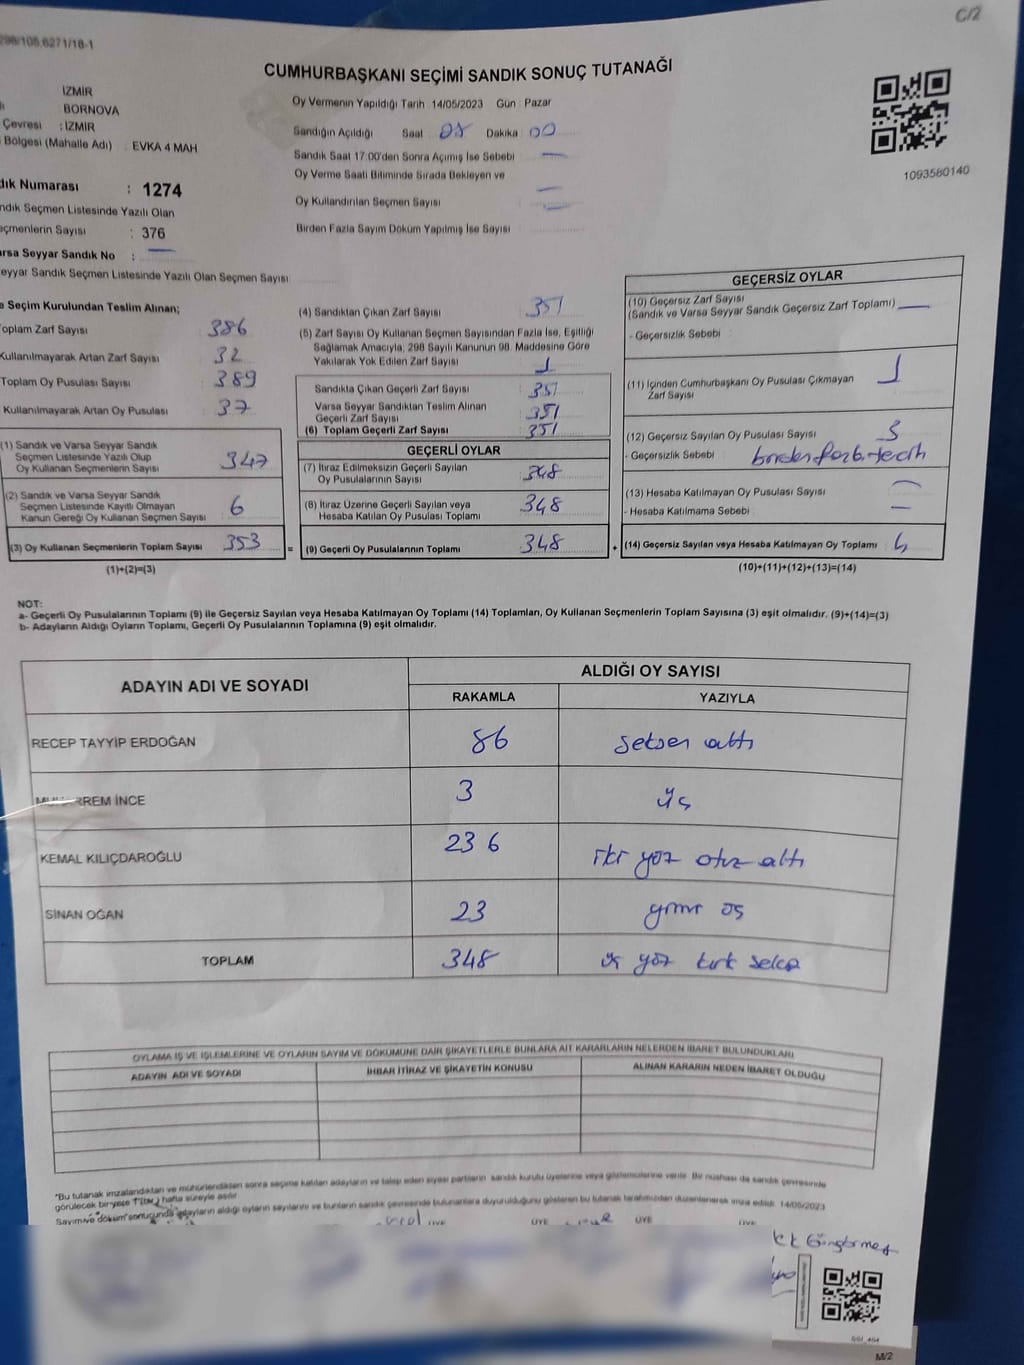 C/2
298/106.6271/18-1
CUMHURBAŞKANI SEÇİMİ SANDIK SONUÇ TUTANAĞI
İZMİR
BORNOVA
Çevresi : İZMİR
Bölgesi (Mahalle Adı) : EVKA 4 MAH
Oy Vermenin Yapıldığı Tarih : 14/05/2023 Gün : Pazar
Sandığın Açıldığı Saat : 08 Dakika : 00
Sandık Saat 17:00'den Sonra Açımış İse Sebebi : —
Oy Verme Saati Bitiminde Sırada Bekleyen ve
Oy Kullandırılan Seçmen Sayısı : —
Birden Fazla Sayım Döküm Yapılmış İse Sayısı
1093580140
dık Numarası : 1274
ndık Seçmen Listesinde Yazılı Olan
eçmenlerin Sayısı : 376
arsa Seyyar Sandık No : —
eyyar Sandık Seçmen Listesinde Yazılı Olan Seçmen Sayısı
e Seçim Kurulundan Teslim Alınan;
oplam Zarf Sayısı : 386
Kullanılmayarak Artan Zarf Sayısı : 32
Toplam Oy Pusulası Sayısı : 389
Kullanılmayarak Artan Oy Pusulası : 37
(1) Sandık ve Varsa Seyyar Sandık
Seçmen Listesinde Yazılı Olup
Oy Kullanan Seçmenlerin Sayısı : 347
(2) Sandık ve Varsa Seyyar Sandık
Seçmen Listesinde Kayıtlı Olmayan
Kanun Gereği Oy Kullanan Seçmen Sayısı : 6
(3) Oy Kullanan Seçmenlerin Toplam Sayısı : 353
(1)+(2)=(3)
(4) Sandıktan Çıkan Zarf Sayısı : 351
(5) Zarf Sayısı Oy Kullanan Seçmen Sayısından Fazla İse, Eşitliği
Sağlamak Amacıyla; 298 Sayılı Kanunun 98. Maddesine Göre
Yakılarak Yok Edilen Zarf Sayısı : 1
Sandıkta Çıkan Geçerli Zarf Sayısı : 351
Varsa Seyyar Sandıktan Teslim Alınan
Geçerli Zarf Sayısı : 351
(6) Toplam Geçerli Zarf Sayısı : 351
GEÇERLİ OYLAR
(7) İtiraz Edilmeksizin Geçerli Sayılan
Oy Pusulalarının Sayısı : 348
(8) İtiraz Üzerine Geçerli Sayılan veya
Hesaba Katılan Oy Pusulası Toplamı : 348
= (9) Geçerli Oy Pusulalarının Toplamı : 348
GEÇERSİZ OYLAR
(10) Geçersiz Zarf Sayısı
(Sandık ve Varsa Seyyar Sandık Geçersiz Zarf Toplamı) : —
- Geçersizlik Sebebi :
(11) İçinden Cumhurbaşkanı Oy Pusulası Çıkmayan
Zarf Sayısı : 1
(12) Geçersiz Sayılan Oy Pusulası Sayısı
- Geçersizlik Sebebi : birden fazla tercih
(13) Hesaba Katılmayan Oy Pusulası Sayısı : —
- Hesaba Katılmama Sebebi : —
+ (14) Geçersiz Sayılan veya Hesaba Katılmayan Oy Toplamı :
(10)+(11)+(12)+(13)=(14)
NOT:
a- Geçerli Oy Pusulalarının Toplamı (9) ile Geçersiz Sayılan veya Hesaba Katılmayan Oy Toplamı (14) Toplamları, Oy Kullanan Seçmenlerin Toplam Sayısına (3) eşit olmalıdır. (9)+(14)=(3)
b- Adayların Aldığı Oyların Toplamı, Geçerli Oy Pusulalarının Toplamına (9) eşit olmalıdır.
ADAYIN ADI VE SOYADI
ALDIĞI OY SAYISI
RAKAMLA YAZIYLA
RECEP TAYYİP ERDOĞAN 86 seksen altı
MUHARREM İNCE 3 üç
KEMAL KILIÇDAROĞLU 236 iki yüz otuz altı
SİNAN OĞAN 23 yirmi üç
TOPLAM 348 üç yüz kırk sekiz
OYLAMA İŞ VE İŞLEMLERİNE VE OYLARIN SAYIM VE DÖKÜMÜNE DAİR ŞİKAYETLERLE BUNLARA AİT KARARLARIN NELERDEN İBARET BULUNDUKLARI
ADAYIN ADI VE SOYADI İHBAR İTİRAZ VE ŞİKAYETİN KONUSU ALINAN KARARIN NEDEN İBARET OLDUĞU
*Bu tutanak imzalandıktan ve mühürlendikten sonra seçime katılan adayların ve talep eden siyasi partilerin sandık kurulu üyelerine veya gözlemcilerine verilir. Bir nüshası da sandık çevresinde
görülecek bir yere 1 (bir) hafta süreyle asılır.
Sayım ve döküm sonucunda adayların aldığı oyların sayılarını ve bunların sandık çevresinde bulunanlara duyurulduğunu gösteren bu tutanak tarafımızdan düzenlenerek imza edildi. 14/05/2023
ÜYE ÜYE ÜYE ÜYE
M/2